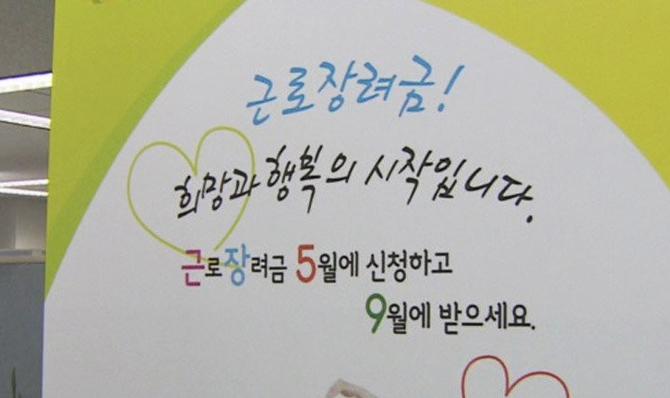 근로장려금!
희망과 행복의 시작입니다.
근로장려금 5월에 신청하고
9월에 받으세요.